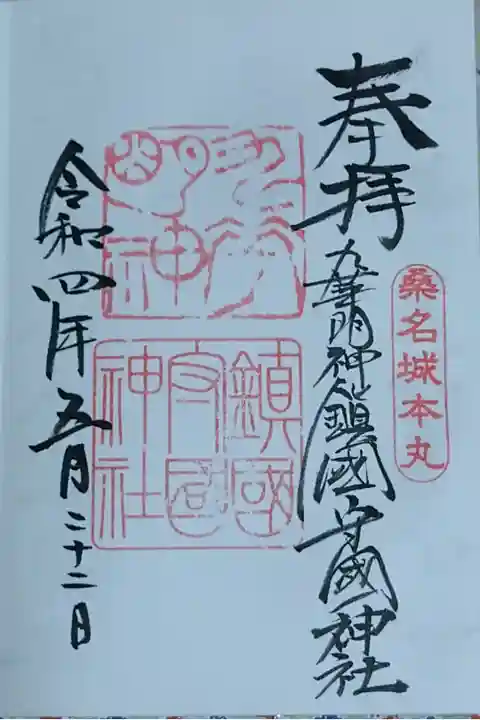 奉拝
桑名城本丸
九華明神 鎮國守國神社
鎮國
守國
神社
令和四年五月二十二日